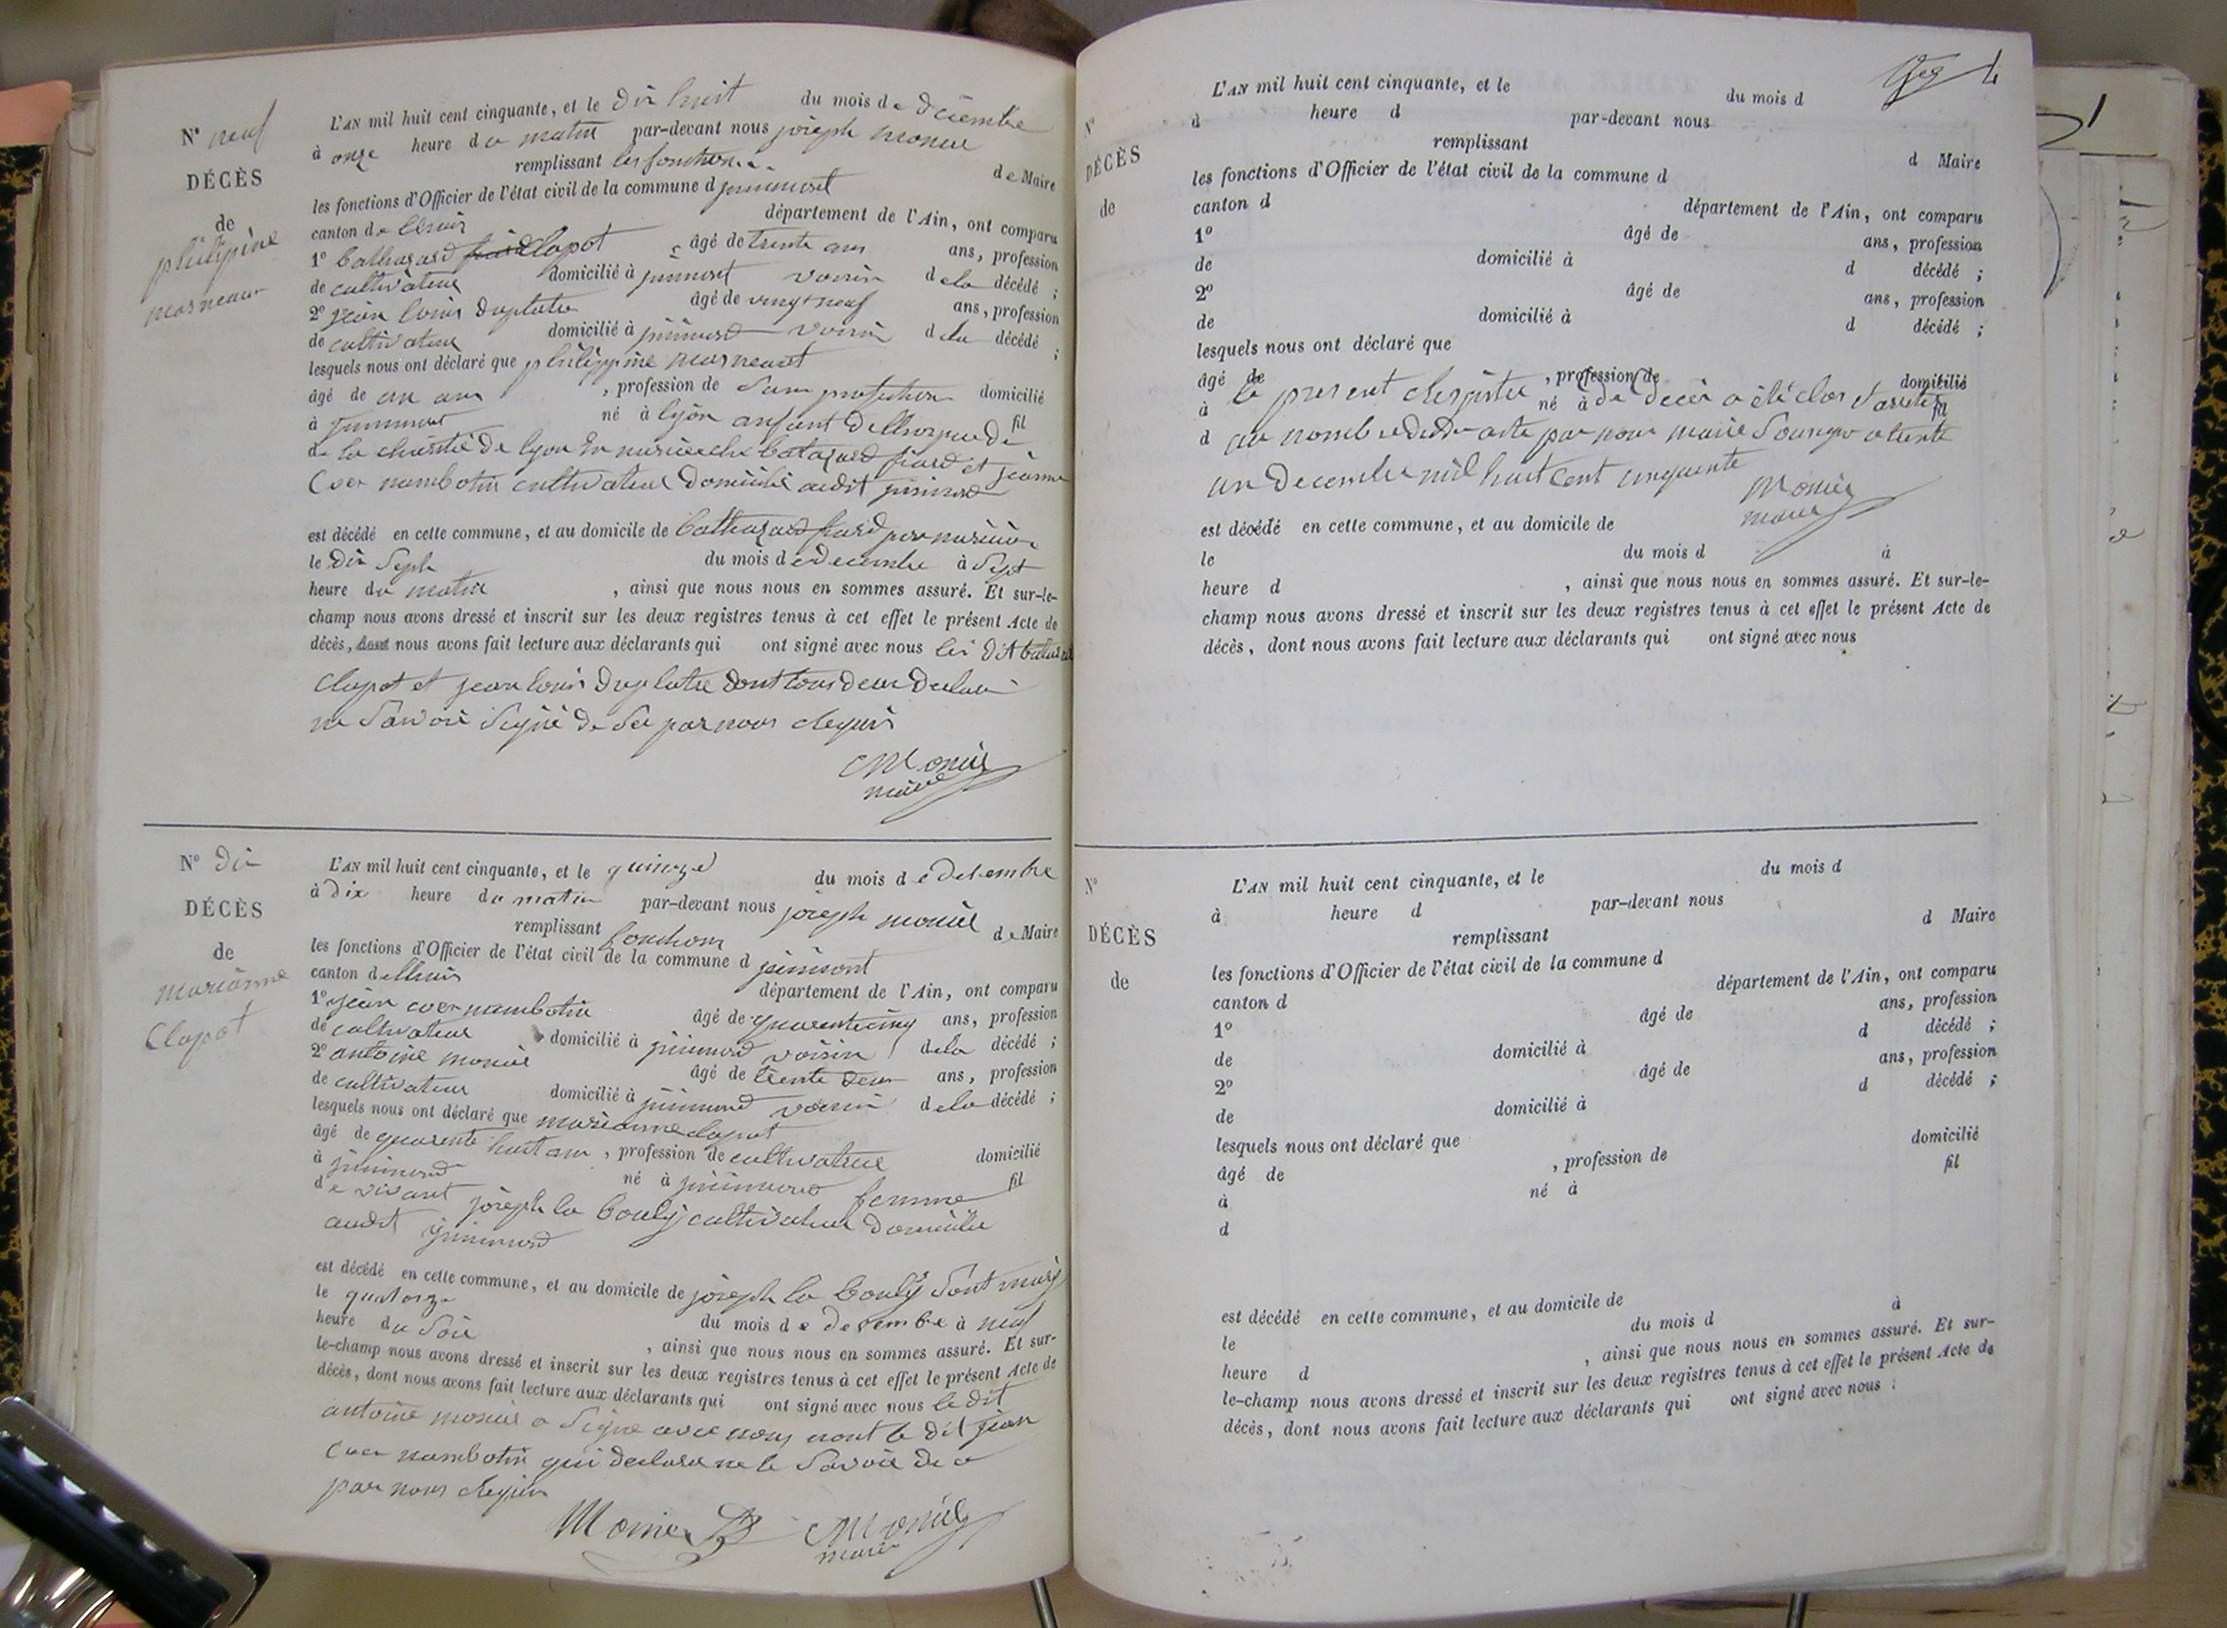 N° neuf
DÉCÈS
de
philipine
L'AN mil huit cent cinquante, et le dix huit du mois de décembre
à onze heure du matin par-devant nous joseph monier
remplissant les fonctions de Maire
les fonctions d'Officier de l'état civil de la commune d
canton de département de l'Ain, ont comparu
1° balthazard clapot âgé de trente ans ans, profession
de cultivateur domicilié à voisin de la décédé ;
2° jean louis duplatre âgé de vingt neuf ans, profession
de cultivateur domicilié à voisin de la décédé ;
lesquels nous ont déclaré que philippine
âgé de un an , profession de sans profection domicilié
à né à lyon anfant de fil
de la charité de lyon En et jeanne
cultivateur domicilié audit
est décédé en cette commune, et au domicile de balthazard
le dix Sept du mois de decembre à Sept
heure du matin , ainsi que nous nous en sommes assuré. Et sur-le-
champ nous avons dressé et inscrit sur les deux registres tenus à cet effet le présent Acte de
décès, dont nous avons fait lecture aux déclarants qui ont signé avec nous les dit
clapot et jean louis duplatre dont tous deux
ne Savoir Signé de par nous
Monier
maire
N° dix
DÉCÈS
de
marianne
Clapot
L'AN mil huit cent cinquante, et le quinze du mois de desembre
à dix heure du matin par-devant nous joseph monier
remplissant fonctions de Maire
les fonctions d'Officier de l'état civil de la commune d
canton d département de l'Ain, ont comparu
1° jean âgé de quarente cinq ans, profession
de cultivateur domicilié à voisin de la décédé ;
2° antoine monier âgé de trente deux ans, profession
de cultivateur domicilié à voisin de la décédé ;
lesquels nous ont déclaré que marianne clapot
âgé de quarente huit ans , profession de cultivateur domicilié
à né à fil
de vivant joseph la bouly cultivateur domicilié femme
audit
est décédé en cette commune, et au domicile de joseph la bouly
le quatorze du mois de desembre à neuf
heure du Soir , ainsi que nous nous en sommes assuré. Et sur-
le-champ nous avons dressé et inscrit sur les deux registres tenus à cet effet le présent Acte de
décès, dont nous avons fait lecture aux déclarants qui ont signé avec nous le dit
antoine monier a Signe avec nous le dit jean
qui declare ne le Savoir
par nous
Monier Monier
maire
L'AN mil huit cent cinquante, et le du mois d
d heure d par-devant nous
remplissant d Maire
N°
DÉCÈS
de
les fonctions d'Officier de l'état civil de la commune d
canton d département de l'Ain, ont comparu
1° âgé de ans, profession
de domicilié à d décédé ;
2° âgé de ans, profession
de domicilié à d décédé ;
lesquels nous ont déclaré que
âgé de , profession de domicilié
le present de deces a été clos
à né à fil
d
au nombre de acte par nous maire a trente
un Decembre mil huit cent cinquante
Monier
maire
est décédé en cette commune, et au domicile de
le du mois d à
heure d , ainsi que nous nous en sommes assuré. Et sur-le-
champ nous avons dressé et inscrit sur les deux registres tenus à cet effet le présent Acte de
décès, dont nous avons fait lecture aux déclarants qui ont signé avec nous
N°
DÉCÈS
de
L'AN mil huit cent cinquante, et le du mois d
à heure d par-devant nous
remplissant d Maire
les fonctions d'Officier de l'état civil de la commune d
canton d département de l'Ain, ont comparu
1° âgé de ans, profession
de domicilié à d décédé ;
2° âgé de ans, profession
de domicilié à d décédé ;
lesquels nous ont déclaré que
âgé de , profession de domicilié
à né à fil
d
est décédé en cette commune, et au domicile de
le du mois d à
heure d , ainsi que nous nous en sommes assuré. Et sur-
le-champ nous avons dressé et inscrit sur les deux registres tenus à cet effet le présent Acte de
décès, dont nous avons fait lecture aux déclarants qui ont signé avec nous :